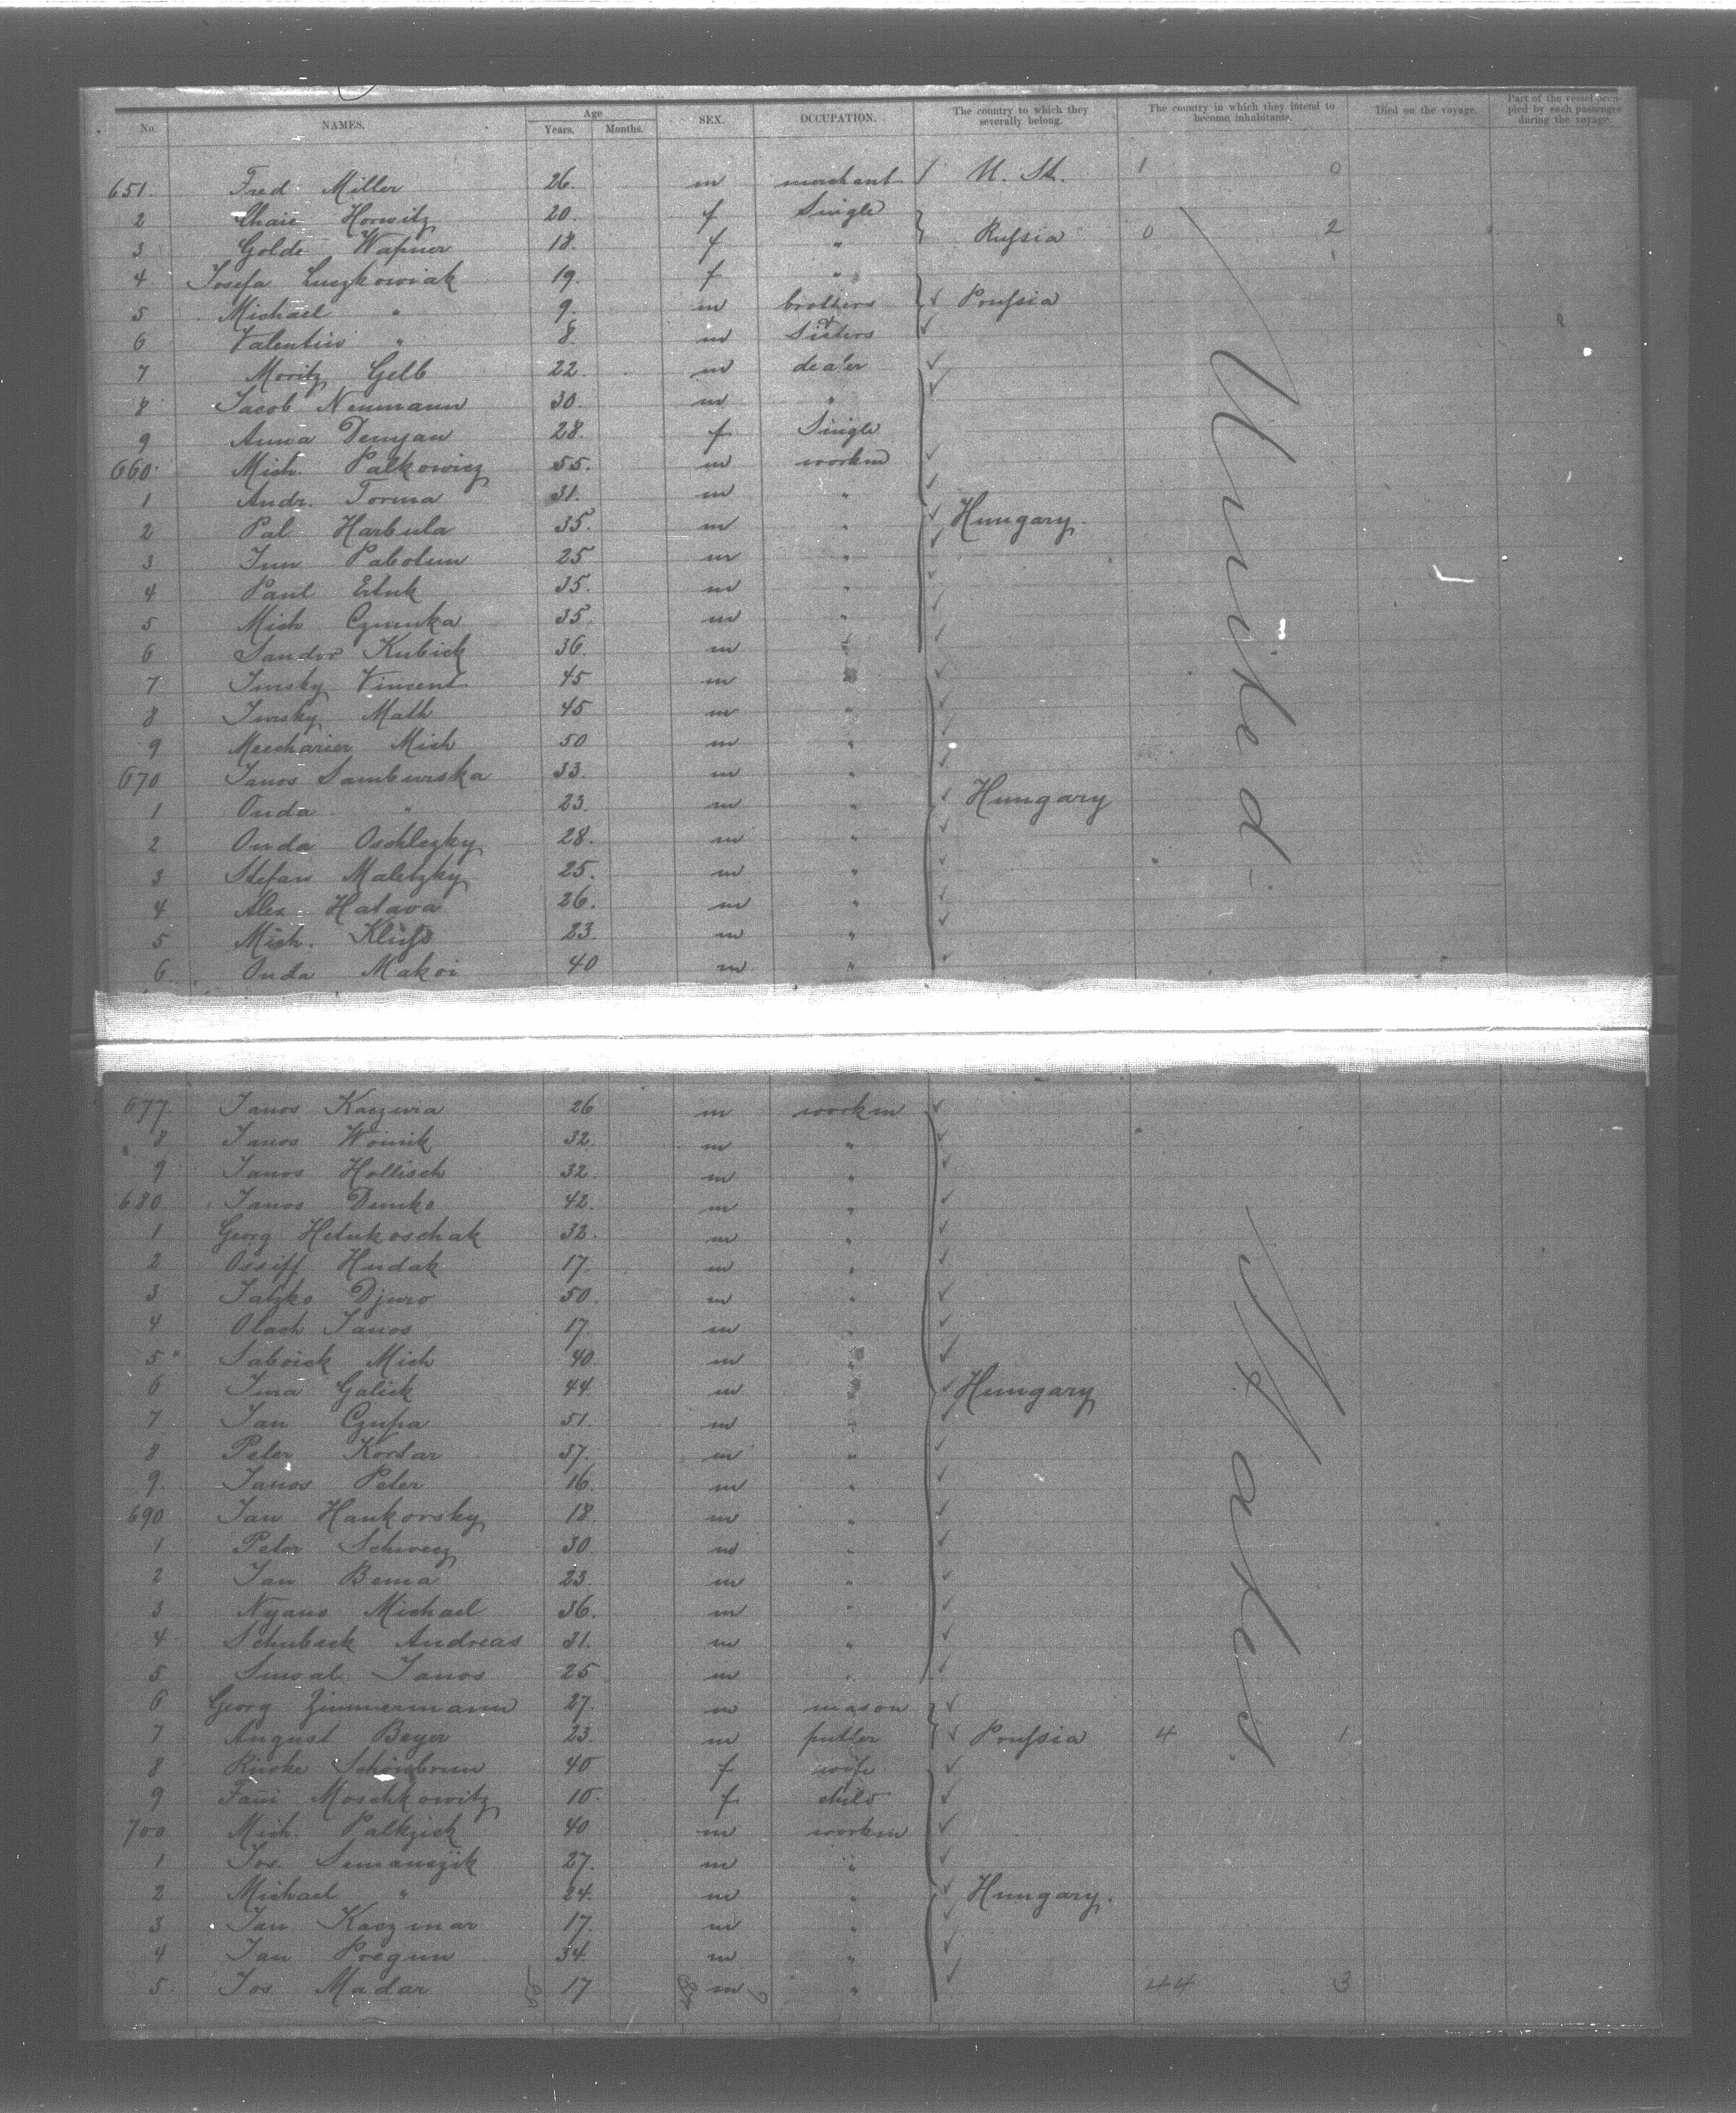 No. NAMES. Age Years. Months. SEX. OCCUPATION. The country to which they severally belong. The country in which they intend to become inhabitants. Died on the voyage. Part of the vessel occupied by each passenger during the voyage.
651. Fred Miller 26. m merchant / U. St. 1 0
2 Chaie Horwitz 20. f Single
3 Golde Wapner 18. f " Rußia 0 2
4 Josefa Luszkowiak 19. f "
5 Michael " 9. m brothers Prußia
6 Valentin " 8. m & Sisters
7 Moritz Gelb 22. m dealer
8 Jacob Neumann 30. m "
9 Anna Demjan 28. f Single
660. Mich. Palkowicz 55. m workm
1 Andr. Torma 31. m "
2 Pal Harbula 35. m " Hungary.
3 25 m "
4 Paul 35. m "
5 Mich 35. m "
6 Sandor Kubick 36. m "
7 Vincent 45 m "
8 Math 45 m "
9 Mich 50 m "
670 Janos Samburska 33. m "
1 Onda " 23. m " Hungary
2 Onda Oschlezky 28. m "
3 Stefan Maletzky 25. m "
4 Alex. Hatava 26. m "
5 Mich. 23. m "
6 Onda Makoi 40 m "
United
677. Janos 26 m workm
8 Janos Woinik 32. m "
9 Janos Hollisch 32. m "
680 Janos Demko 42. m "
1 Georg Hetnkoschak 32. m "
2 Ossiff Hudak 17. m "
3 Djuro 50. m "
4 Olach Janos 17. m "
5 Saboick Mich 40. m "
6 Jura Galick 44. m " Hungary
7 Jan 51. m "
8 Peter Korbar 37. m "
9 Janos Peter 16. m "
690 Jan Hankovsky 18. m "
1 Peter Schwecz 30. m "
2 Jan Bema 23. m "
3 Nyano Michael 36. m "
4 Schuback Andreas 31. m "
5 Janos 25 m "
6 Georg Zimmermann 27. m mason
7 August Beyer 23. m Prußia 4 1
8 Rivke Schönbrun 40 f wife
9 Fani Moschkowitz 10. f child
700 Mich. Palkzick 40 m workm
1 Jos. Semanczik 27. m "
2 Michael " 24. m " Hungary.
3 Jan Kaczmar 17. m "
4 Jan Pregun 34. m "
5 Jos Madar 17 m " 44 3
States.